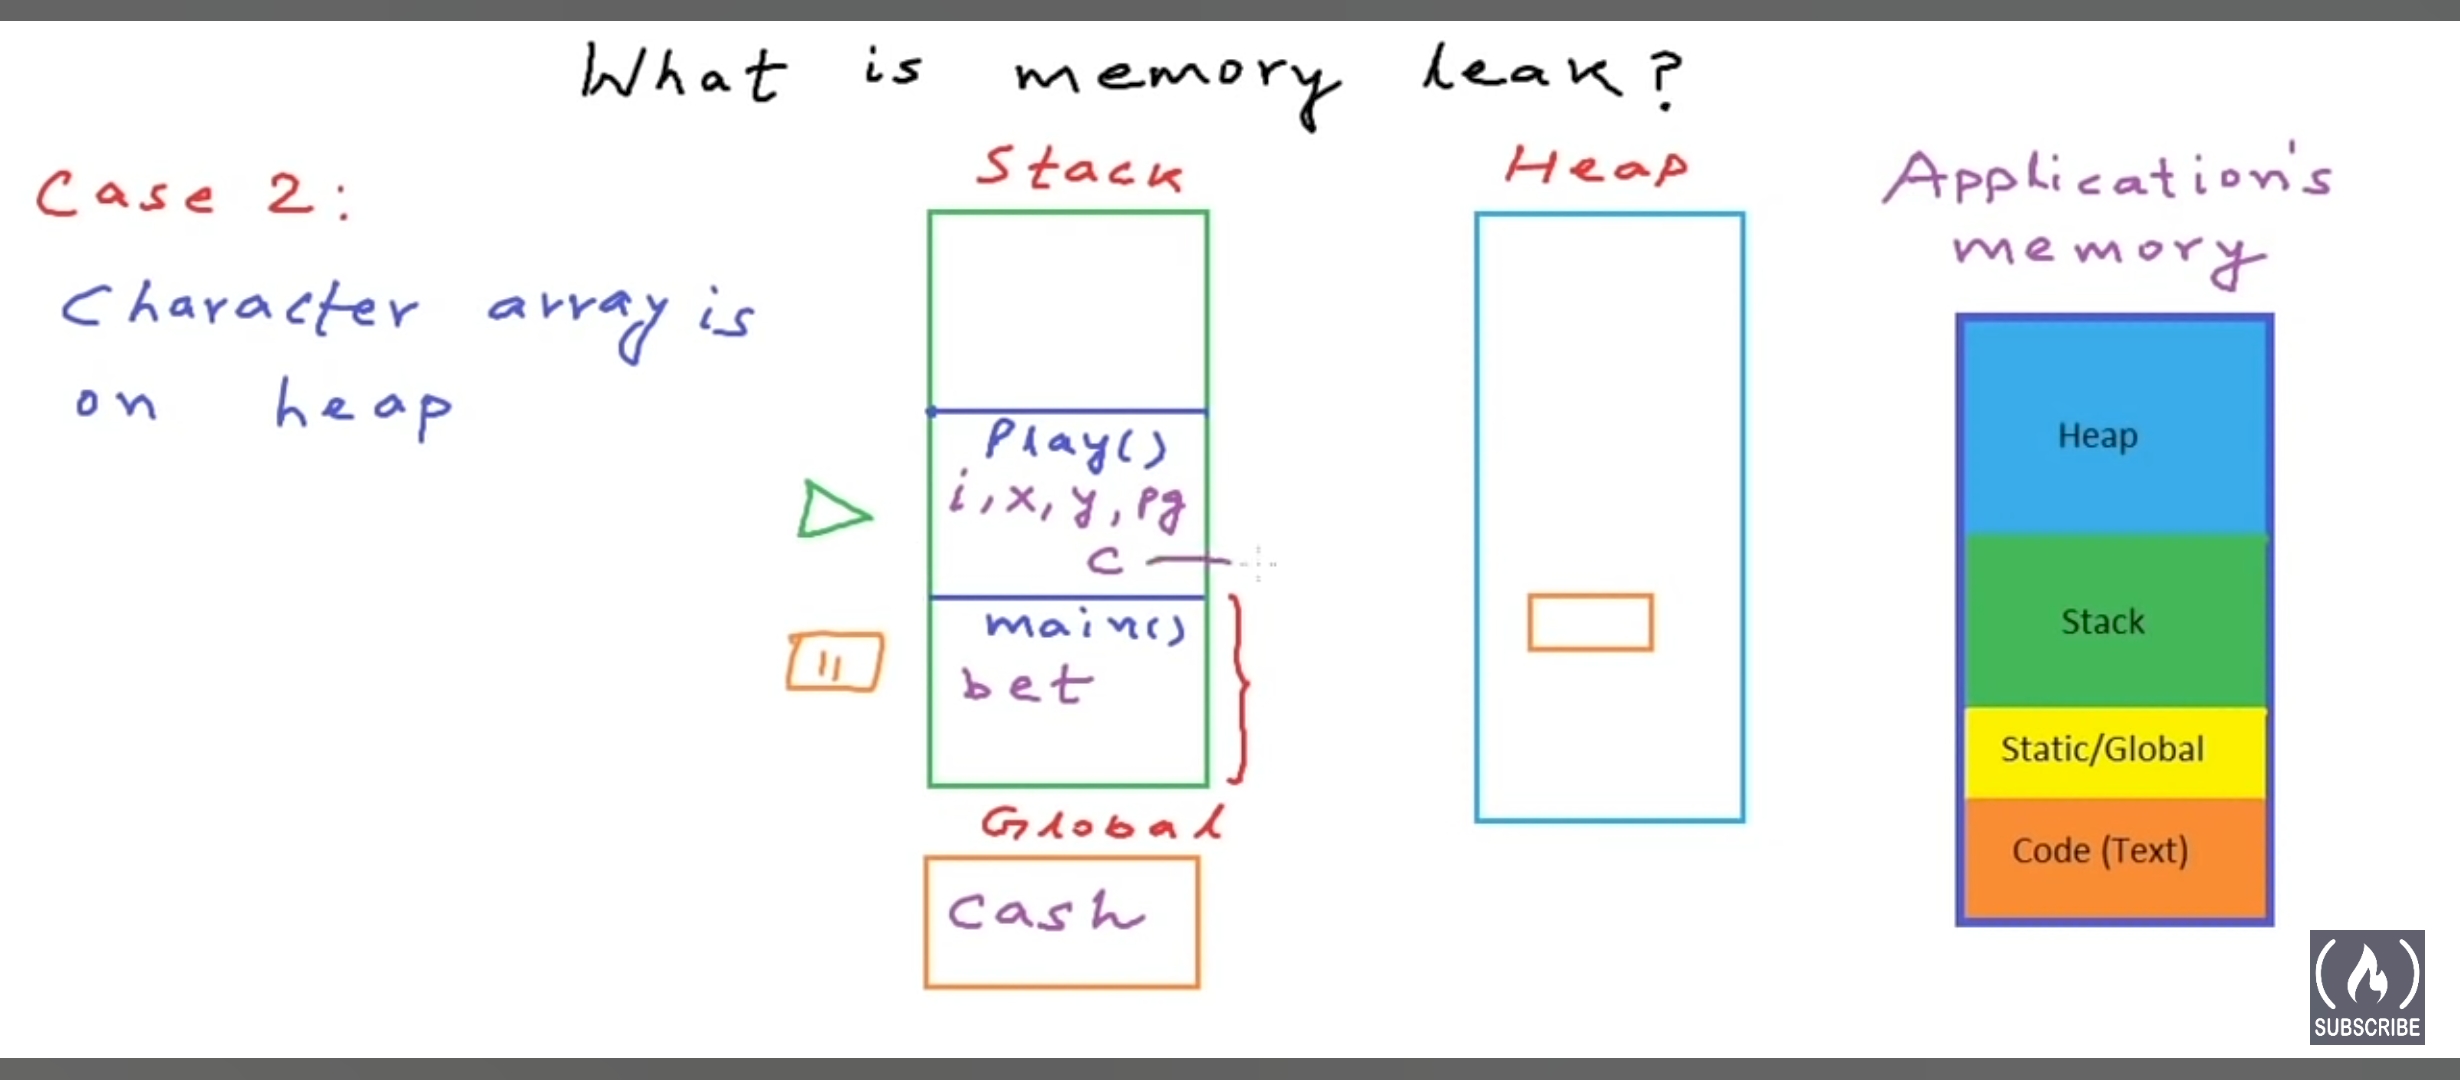 What is memory leak?
Case 2:
Character array is
on heap
Stack
Play()
i, x, y, pg
c
main()
bet
Global
cash
Heap
Application's
memory
Heap
Stack
Static/Global
Code (Text)
SUBSCRIBE